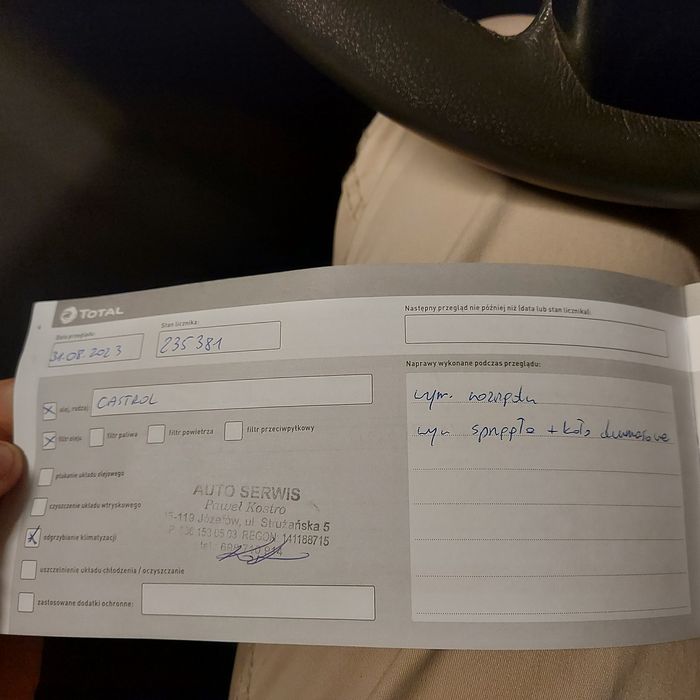 TOTAL
Data przeglądu:
31.08.2023
Stan licznika:
235 381
olej, rodzaj
CASTROL
filtr oleju
filtr paliwa
filtr powietrza
filtr przeciwpyłkowy
płukanie układu olejowego
czyszczenie układu wtryskowego
odgrzybianie klimatyzacji
uszczelnienie układu chłodzenia / oczyszczanie
zastosowane dodatki ochronne:
AUTO SERWIS
Paweł Kostro
5-119 Józefów, ul. Strużańska 5
REGON: 141188715
tel.
Następny przegląd nie później niż (data lub stan licznika):
Naprawy wykonane podczas przeglądu:
wym. rozrządu
wym sprzęgło + koło dwumasowe